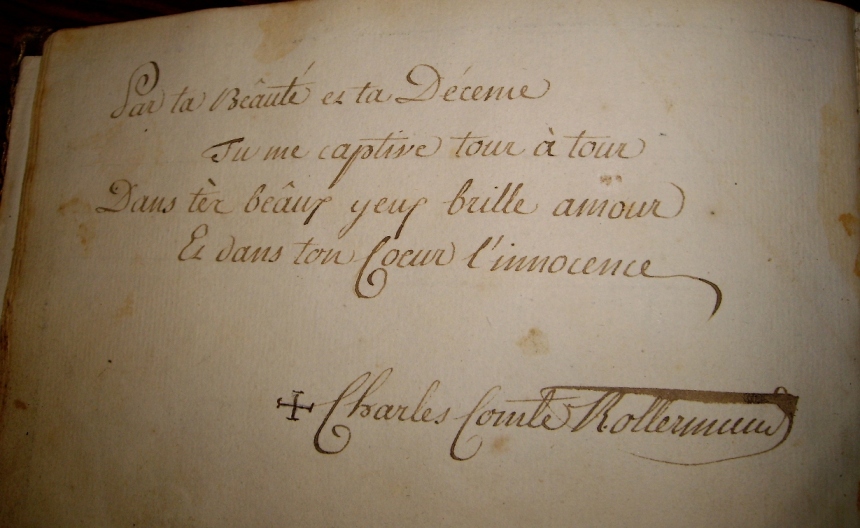 Par ta Bêauté et ta Décence
Tu me captive tour à tour
Dans tès beâux yeux brille amour
Et dans ton Coeur l'innocence
Charles Comte